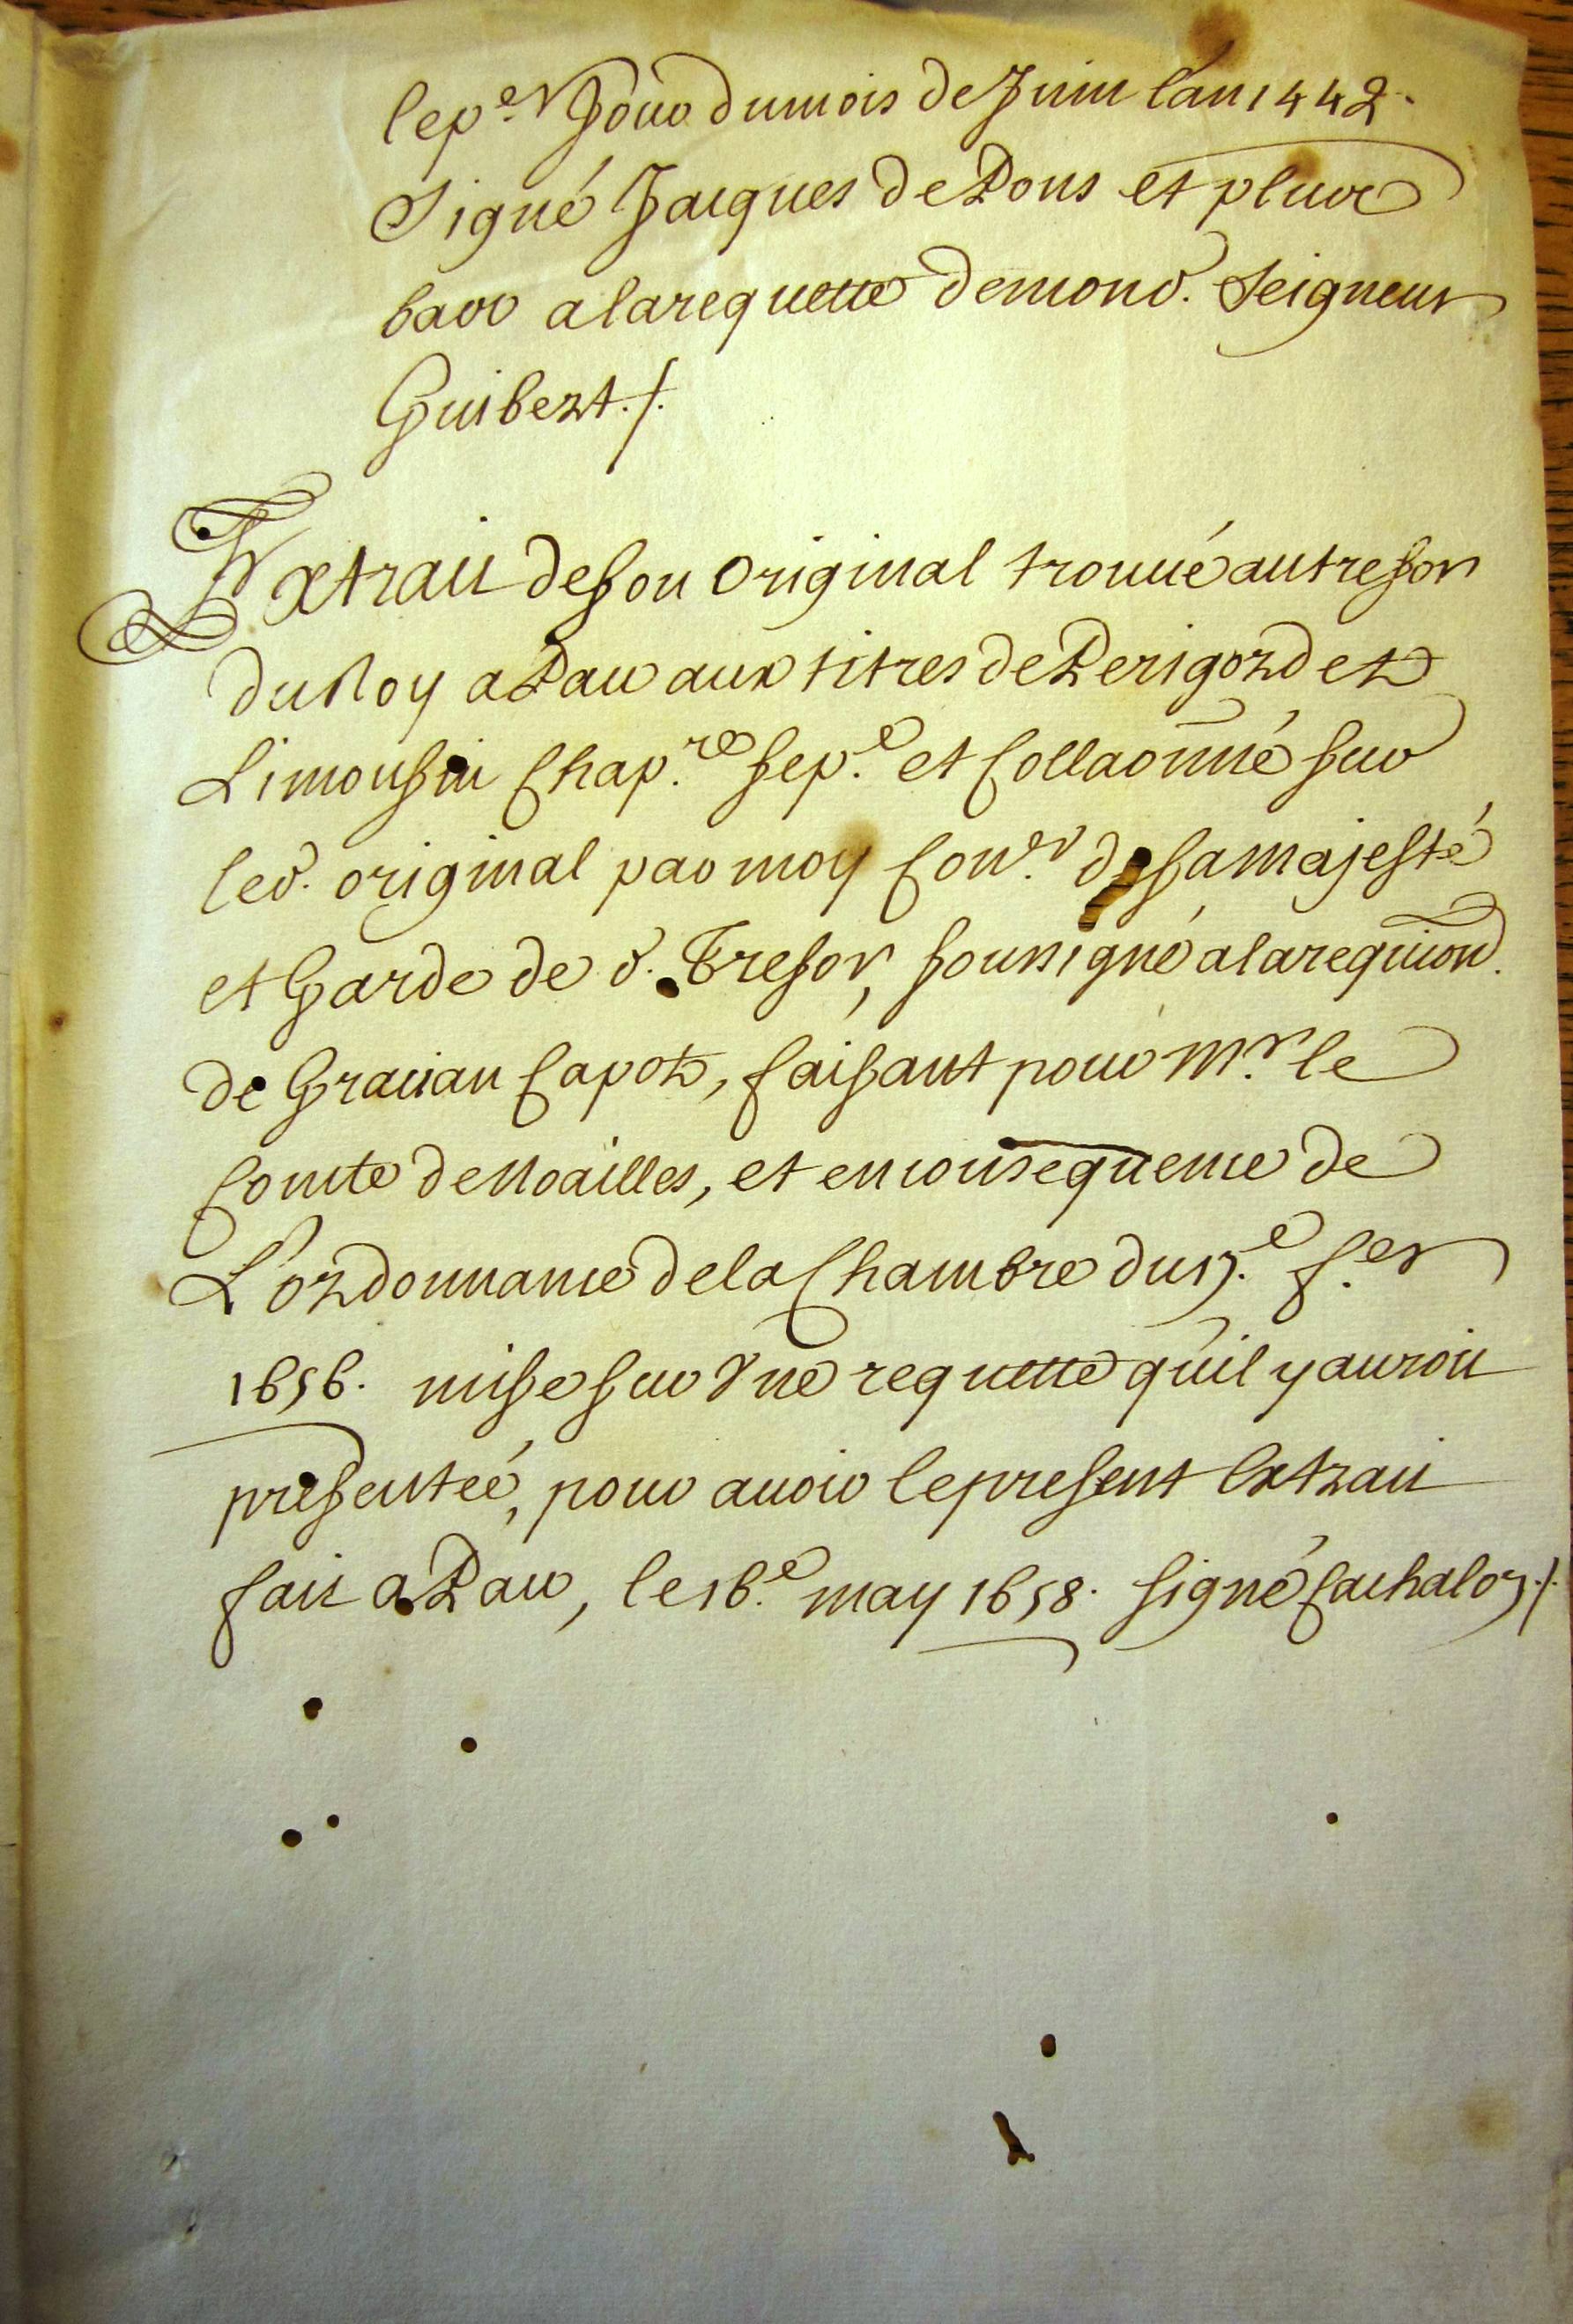 le p.er Jour du mois de Juin l'an 1442.
Signé Jacques de Pons et plus
bas a la requette de mond. Seigneur
Guibert./.
Extrait de son Original trouué au tresor
du Roy a Pau aux titres de Perigord et
Limousin Chap.re sep.e et Collaonné sur
led. original par moy Con.er de sa majesté
et Garde de d. Tresor, soussigné a la requiōn
de Gracian Capot, faisant pour M.r le
Comte de Noailles, et en consequence de
L'ordonnance de la Chambre du 17.e f.er
1656. mise sur Vne requette qu'il y auroit
presenteé, pour auoir le present Extrait
fait a Pau, le 16.e may 1658. signé